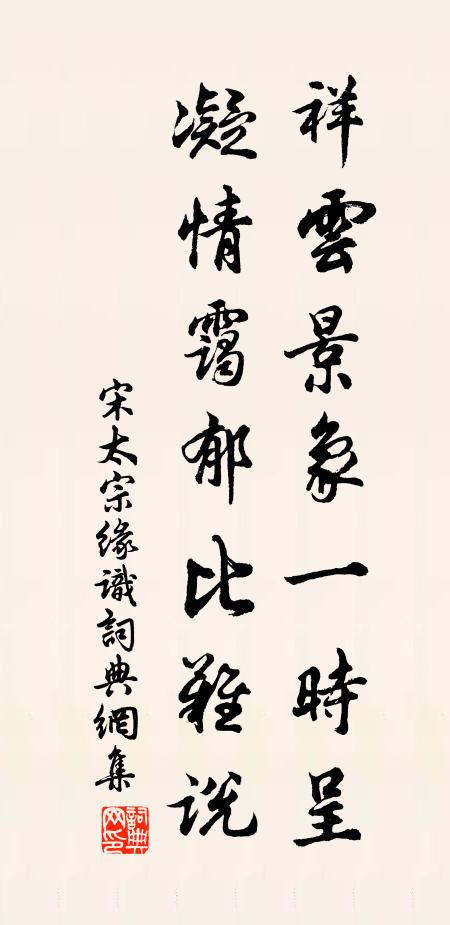 祥雲景象一時呈
凝情靄郁比難說
宋太宗緣識詞典網集
詞典网印